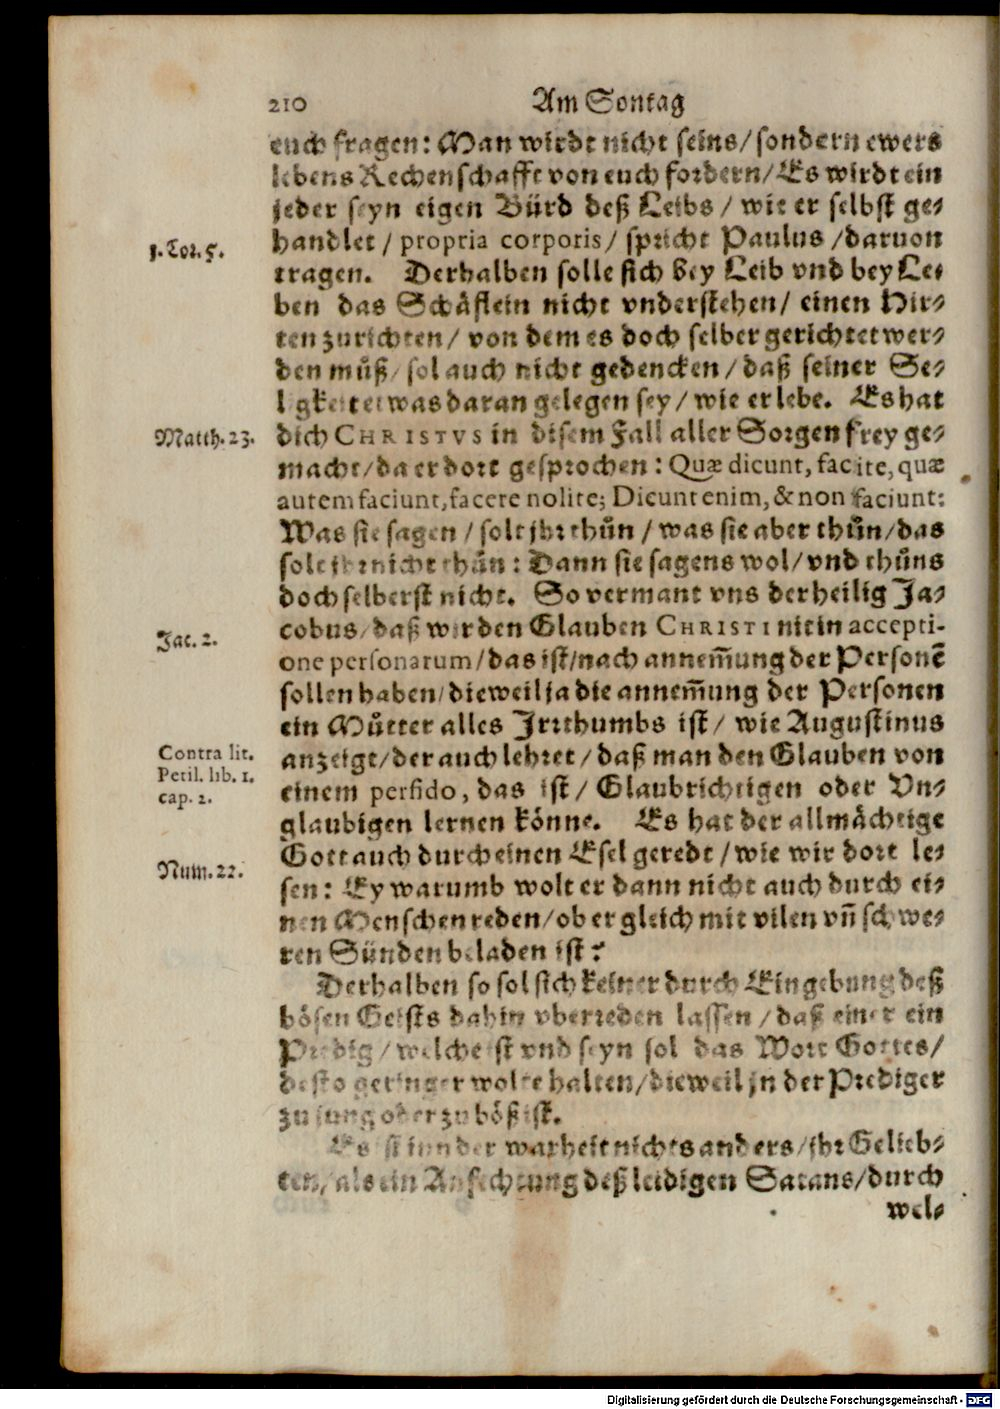 210 Am Sontag
euch fragen: Man wirdt nicht seins/ sondern ewers
lebens Rechenschafft von euch fordern/ Es wirdt ein
jeder seyn eigen Bürd deß Leibs / wie er selbst ge⸗
handlet / propria corporis / spricht Paulus / daruon
1. Cor. 5.
tragen. Derhalben solle sich bey Leib vnd bey Le⸗
ben das Schäflein nicht vnderstehen/ einen Hir⸗
ten zurichten / von dem es doch selber gerichtet wer⸗
den můß/ sol auch nicht gedencken / daß seiner Se⸗
ligkeit etwas daran gelegen sey / wie er lebe. Es hat
Matth. 23.
dich CHRISTVS in disem Fall aller Sorgen frey ge⸗
macht/ da er dort gesprochen: Quæ dicunt, facite, quæ
autem faciunt, facere nolite; Dicunt enim, & non faciunt:
Was sie sagen / solt jhr thůn / was sie aber thůn/ das
solt jhr nicht thůn: Dann sie sagens wol/ vnd thůns
doch selberst nicht. So vermant vns der heilig Ja⸗
Jac. 2.
cobus/ daß wir den Glauben CHRISTI nit in accepti-
one personarum / das ist/ nach annem̃ung der Personẽ
sollen haben/ dieweil ja die annem̃ung der Personen
ein Můtter alles Jrrthumbs ist/ wie Augustinus
Contra lit.
Petil. lib. 1.
cap. 2.
anzeigt/ der auch lehret / daß man den Glauben von
einem perfido, das ist / Glaubrichtigen oder Vn⸗
glaubigen lernen könne. Es hat der allmächtige
Gott auch durch einen Esel geredt / wie wir dort le⸗
Num. 22.
sen: Ey warumb wolt er dann nicht auch durch ei⸗
nen Menschen reden/ ob er gleich mit vilen vñ schwe⸗
ren Sünden beladen ist?
Derhalben so sol sich keiner durch Eingebung deß
bösen Geists dahin vberreden lassen / daß einer ein
Predig / welche ist vnd seyn sol das Wort Gottes/
desto geringer wolte halten/ dieweil jn der Prediger
zu jung oder zu böß ist.
Es ist in der warheit nichts anders/ jhr Gelieb⸗
ten/ als ein Anfechtung deß leidigen Satans/ durch
wel⸗
Digitalisierung gefördert durch die Deutsche Forschungsgemeinschaft - DFG